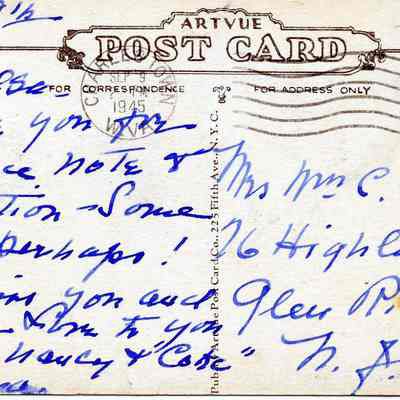 ARTVUE
POST CARD
FOR CORRESPONDENCE
FOR ADDRESS ONLY
CHARLES TOWN
SEP 9
1945
W.VA.
you for
note &
tion - Some
perhaps!
you and
Love to you
Nancy & "Coke"
Pub. by Artvue Post Card Co., 225 Fifth Ave., N. Y. C.
Mrs Wm C.
76 Highl
Glen R
N. J.